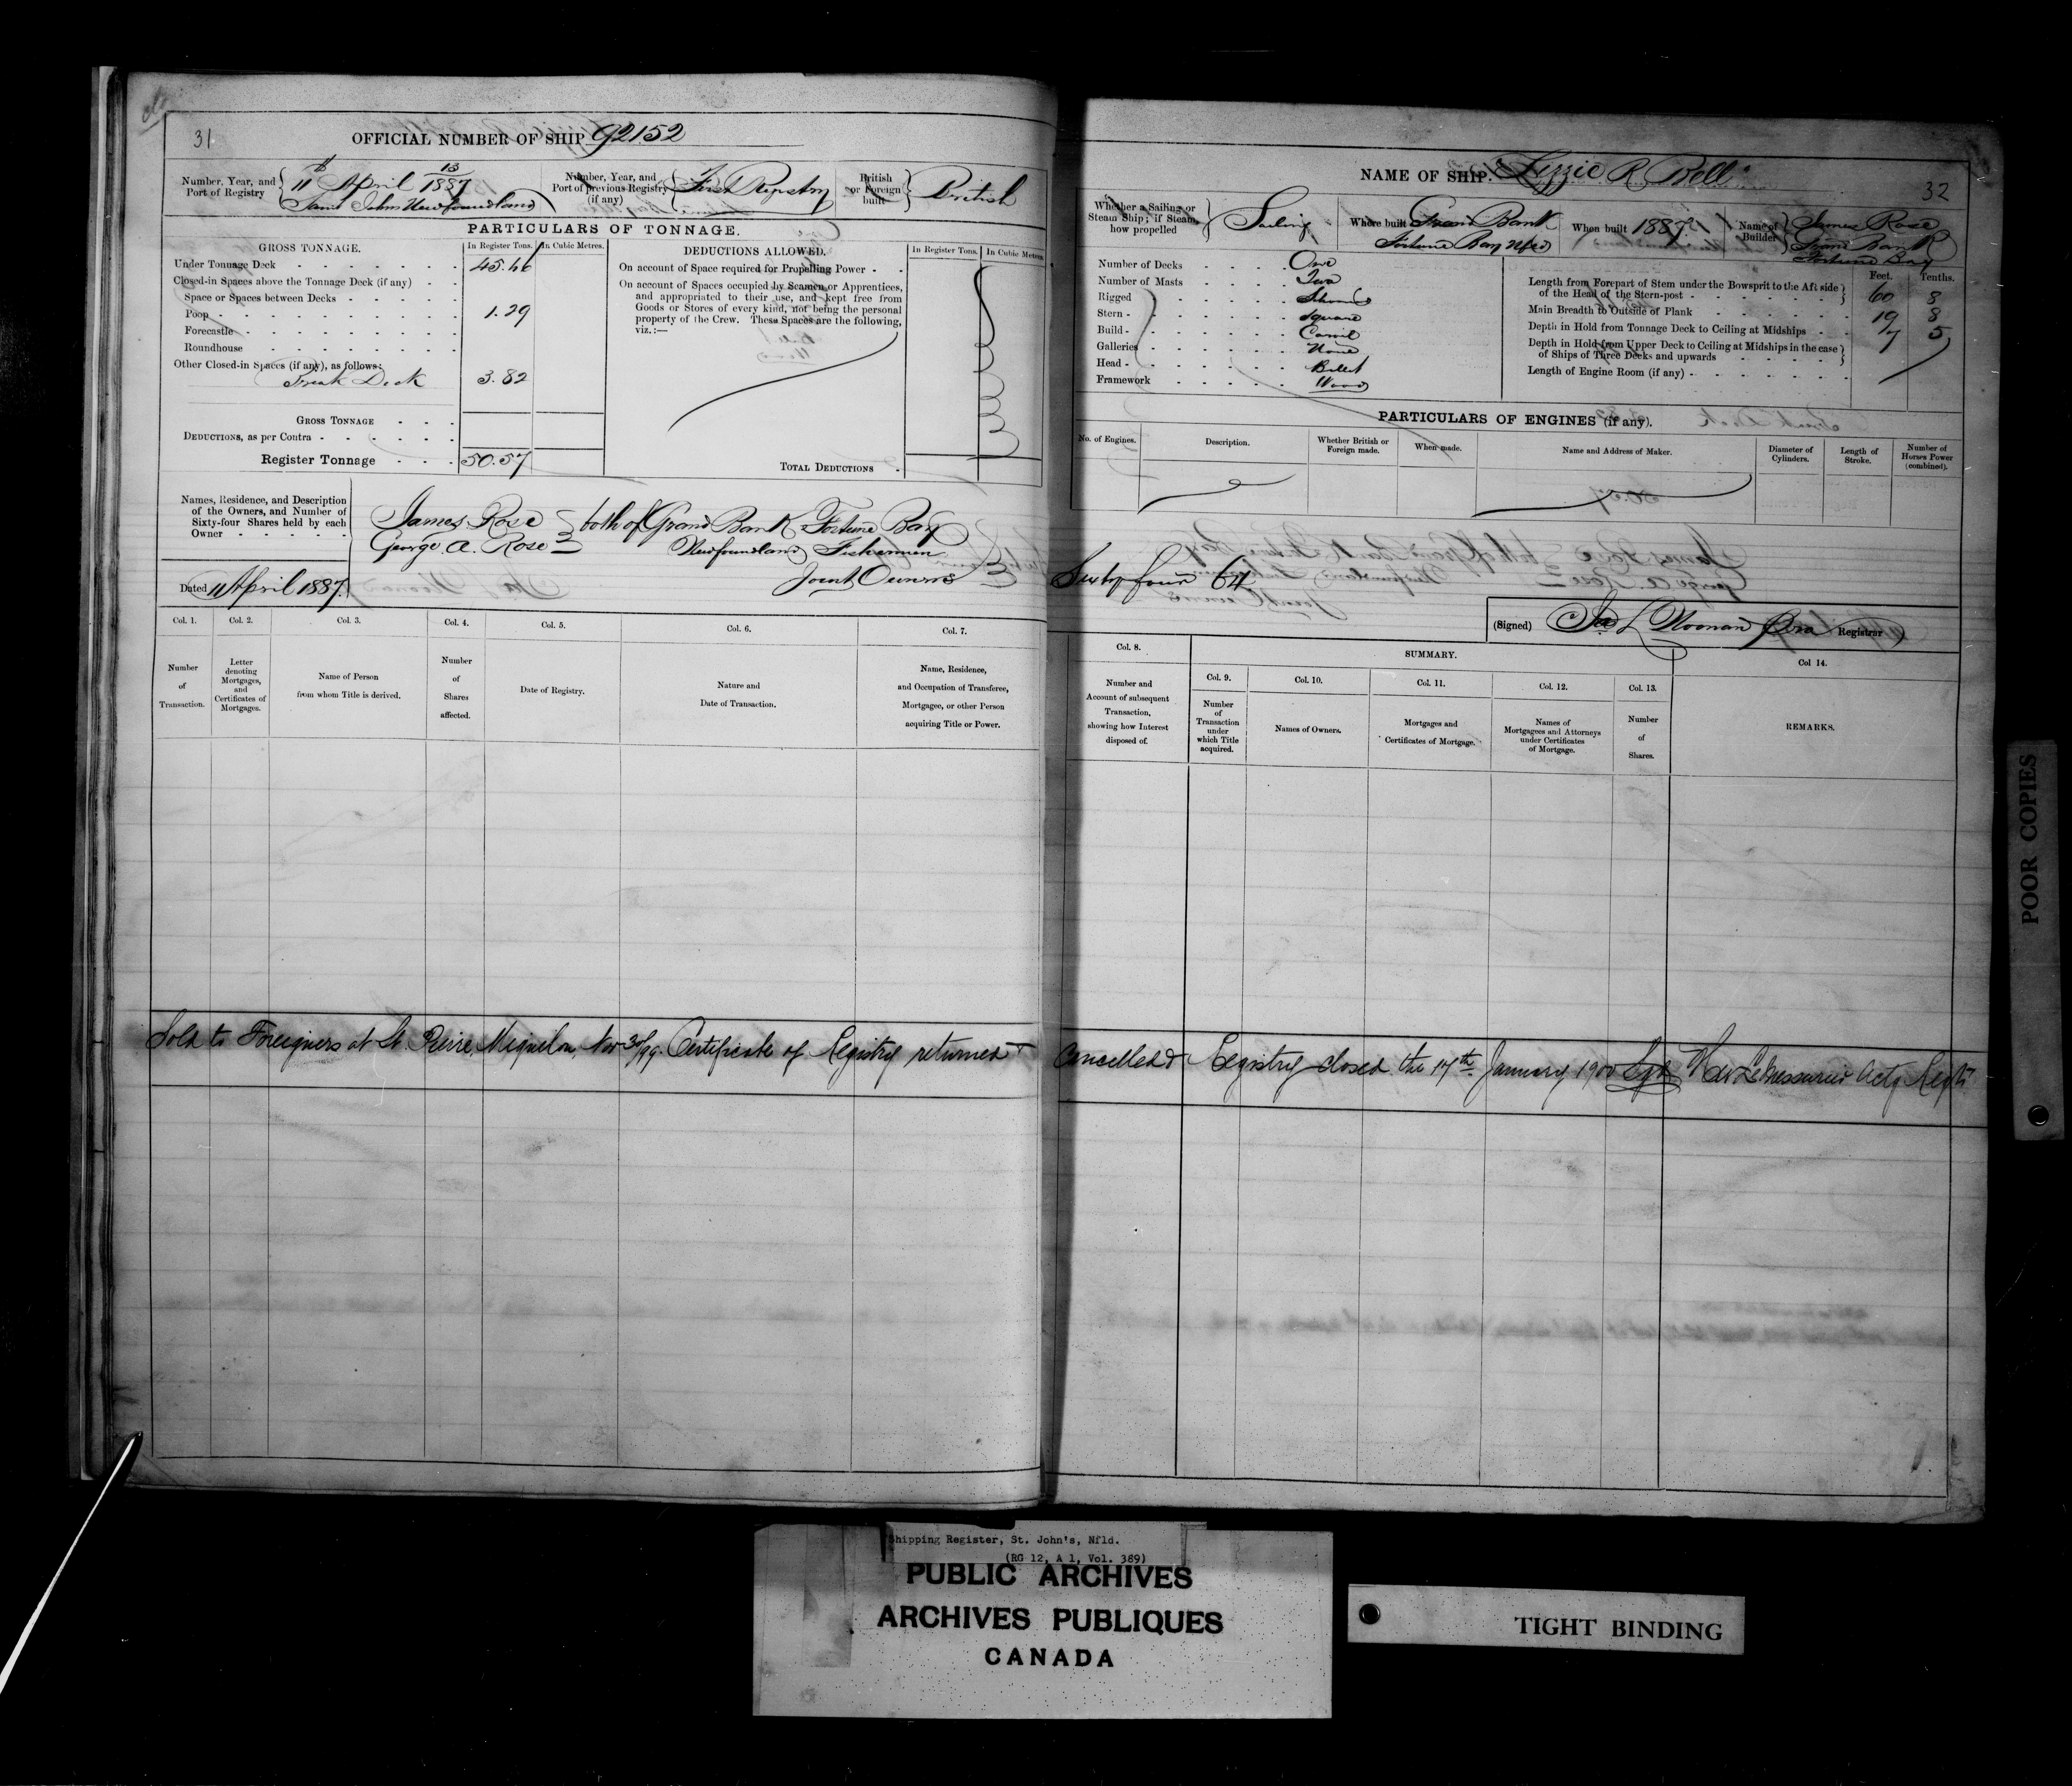 31
OFFICIAL NUMBER OF SHIP 92152
Number, Year, and Port of Registry
11th April 13/1887
Saint Johns Newfoundland
Number, Year, and Port of previous Registry (if any)
First Registry
British or Foreign built
British
PARTICULARS OF TONNAGE.
GROSS TONNAGE.
In Register Tons.
In Cubic Metres.
Under Tonnage Deck 45.46
Closed-in Spaces above the Tonnage Deck (if any)
Space or Spaces between Decks
Poop 1.29
Forecastle
Roundhouse
Other Closed-in Spaces (if any), as follows:
Break Deck 3.82
GROSS TONNAGE
DEDUCTIONS, as per Contra
Register Tonnage 50.57
DEDUCTIONS ALLOWED.
In Register Tons.
In Cubic Metres.
On account of Space required for Propelling Power
On account of Spaces occupied by Seamen or Apprentices,
and appropriated to their use, and kept free from
Goods or Stores of every kind, not being the personal
property of the Crew. These Spaces are the following,
viz.:—
TOTAL DEDUCTIONS
Names, Residence, and Description
of the Owners, and Number of
Sixty-four Shares held by each
Owner
James Rose
George A. Rose
both of Grand Bank Fortune Bay
Newfoundland Fishermen
Joint Owners
Dated 11 April 1887.
Col. 1.
Number of Transaction.
Col. 2.
Letter denoting Mortgages, and Certificates of Mortgages.
Col. 3.
Name of Person from whom Title is derived.
Col. 4.
Number of Shares affected.
Col. 5.
Date of Registry.
Col. 6.
Nature and Date of Transaction.
Col. 7.
Name, Residence, and Occupation of Transferee, Mortgagee, or other Person acquiring Title or Power.
NAME OF SHIP. "Lizzie R Bell"
32
Whether a Sailing or Steam Ship; if Steam, how propelled
Sailing
Where built Grand Bank
Fortune Bay Nfld
When built 1887
Name of Builder
James Rose
Grand Bank
Fortune Bay
Number of Decks One
Number of Masts Two
Rigged
Stern Square
Build Carvel
Galleries None
Head Billet
Framework Wood
Feet. Tenths.
Length from Forepart of Stem under the Bowsprit to the Aft side
of the Head of the Stern-post 60 8
Main Breadth to Outside of Plank 19 8
Depth in Hold from Tonnage Deck to Ceiling at Midships 7 5
Depth in Hold from Upper Deck to Ceiling at Midships in the case
of Ships of Three Decks and upwards
Length of Engine Room (if any)
PARTICULARS OF ENGINES (if any).
No. of Engines.
Description.
Whether British or Foreign made.
When made.
Name and Address of Maker.
Diameter of Cylinders.
Length of Stroke.
Number of Horses Power (combined).
Sixty four 64
(Signed) Noonan Registrar
Col. 8.
Number and Account of subsequent Transaction, showing how Interest disposed of.
SUMMARY.
Col. 9.
Number of Transaction under which Title acquired.
Col. 10.
Names of Owners.
Col. 11.
Mortgages and Certificates of Mortgage.
Col. 12.
Names of Mortgagees and Attorneys under Certificates of Mortgage.
Col. 13.
Number of Shares.
Col 14.
REMARKS.
Sold to Foreigners at St. Pierre, Miquelon, Nov 30/99. Certificate of Registry returned + Cancelled & Registry closed the 17th January 1900 Sgd LeMessurier Actg Regtr
POOR COPIES
Shipping Register, St. John's, Nfld.
(RG 12, A 1, Vol. 389)
PUBLIC ARCHIVES
ARCHIVES PUBLIQUES
CANADA
TIGHT BINDING